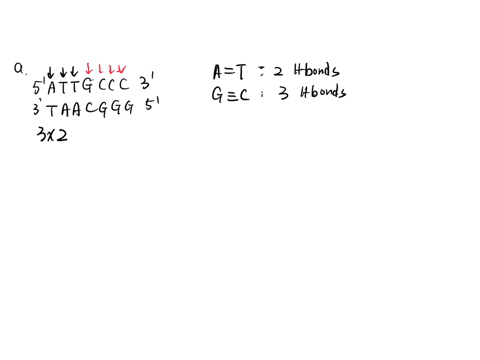 a.
5' ATTGCCC 3'
3' TAACGGG 5'
3x2
A=T : 2 Hbonds
G≡C : 3 Hbonds